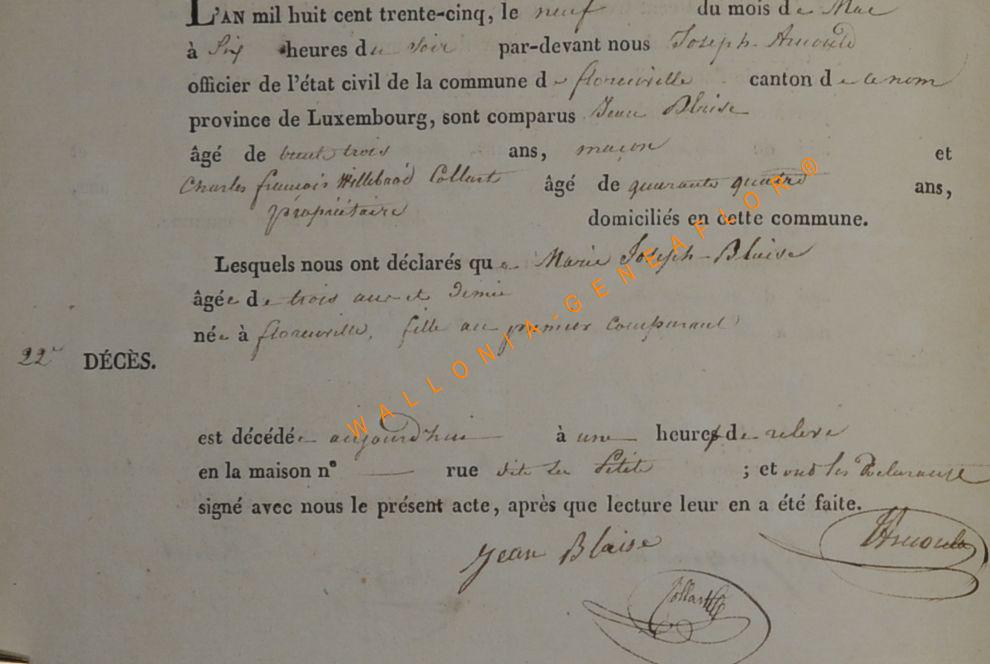 L'AN mil huit cent trente-cinq, le neuf du mois de Mai
à Six heures du soir par-devant nous Joseph Arnould
officier de l'état civil de la commune de florenville canton de ce nom
province de Luxembourg, sont comparus Jean Blaise
âgé de trois ans, maçon et
Charles françois Willebrod Collart âgé de quarante quatre ans,
propriétaire domiciliés en cette commune.
Lesquels nous ont déclarés que Marie Joseph Blaise
âgée de trois ans et demie
née à florenville, fille au premier comparant
22e DÉCÈS.
est décédée aujourd'hui à une heure de relevé
en la maison n° rue dite la ; et ont les Déclarants
signé avec nous le présent acte, après que lecture leur en a été faite.
Jean Blaise
Arnould
Collart
WALLONIA-GENEAFLOR®